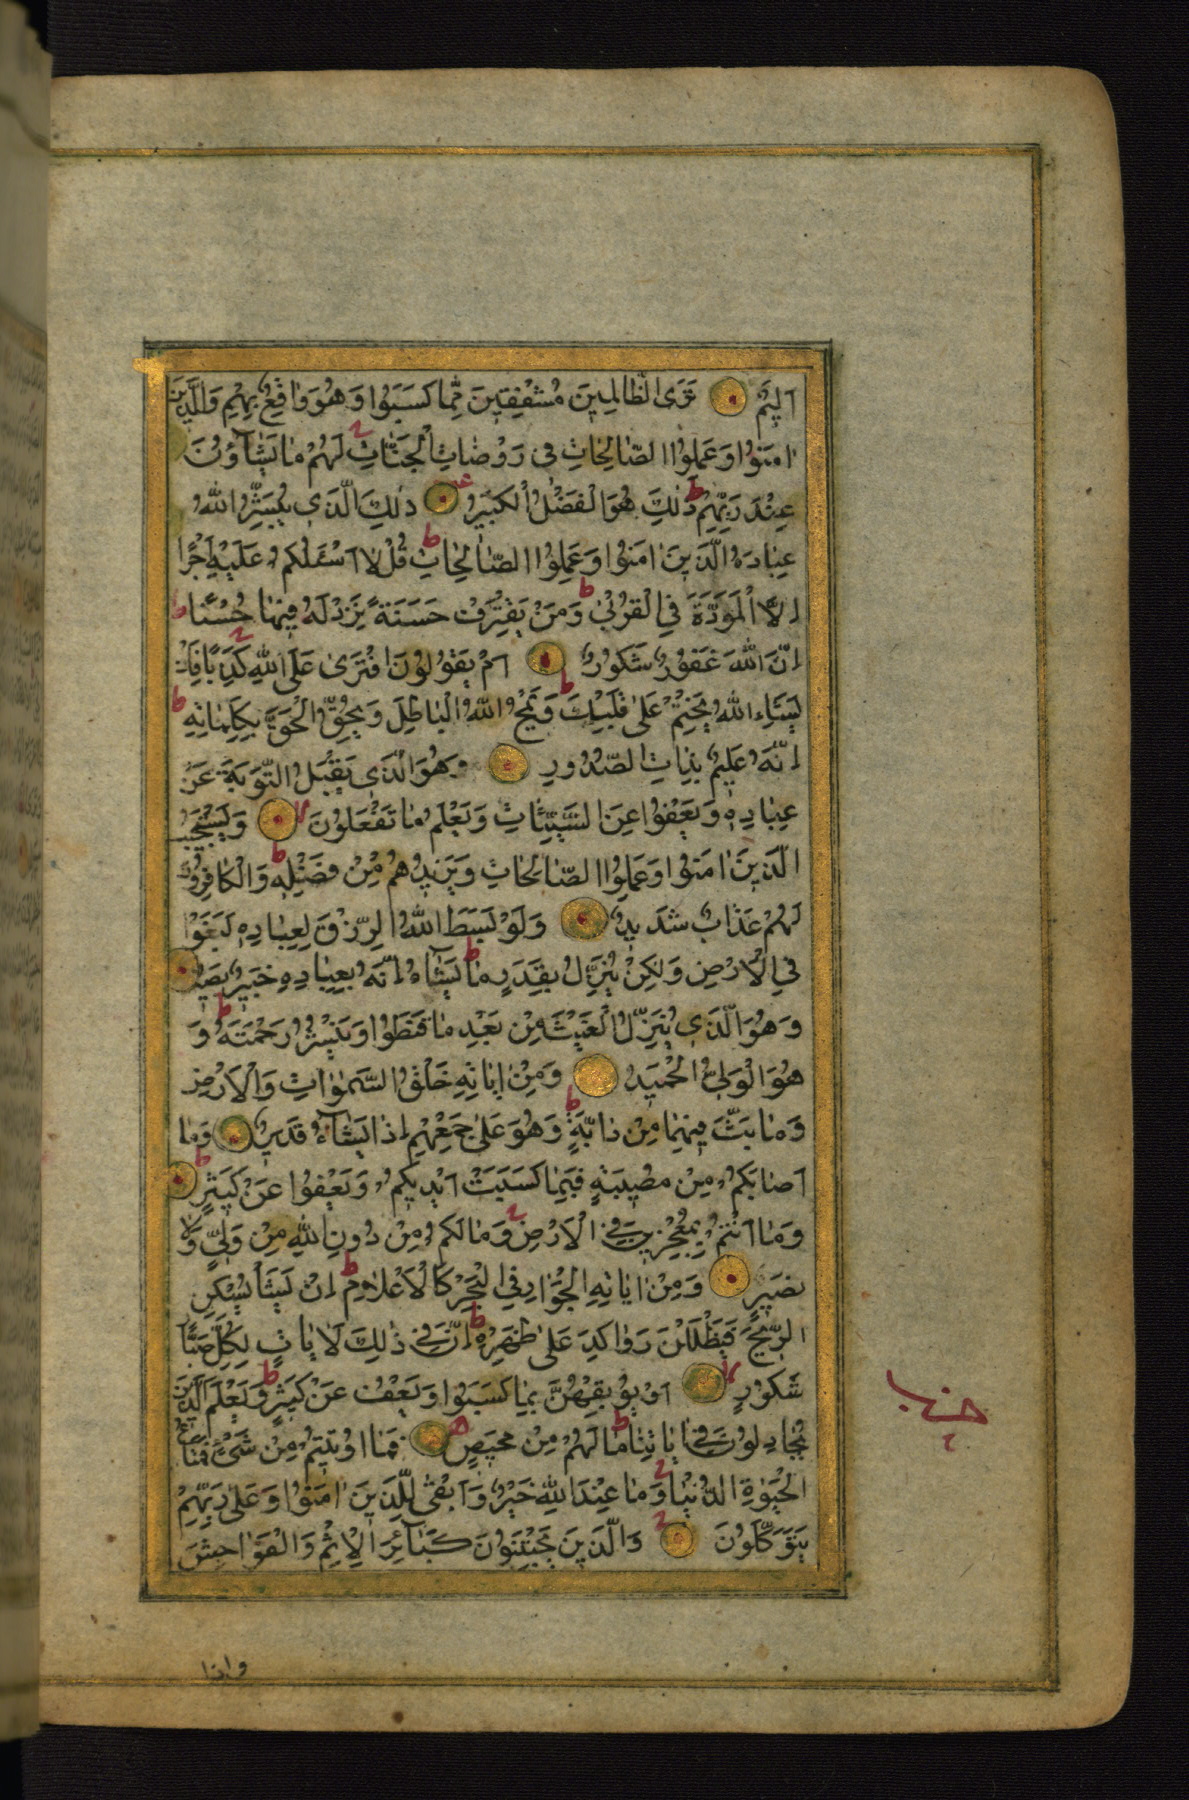 اَلِيمٌ تَرَى الظَّالِمِينَ مُشْفِقِينَ مِمَّا كَسَبُوا وَهُوَ وَاقِعٌ بِهِمْ وَالَّذِينَ
اٰمَنُوا وَعَمِلُوا الصَّالِحَاتِ فِى رَوْضَاتِ الْجَنَّاتِ لَهُمْ مَا يَشَآؤُنَ
عِنْدَ رَبِّهِمْ ذٰلِكَ هُوَ الْفَضْلُ الْكَبِيرُ ذٰلِكَ الَّذِى يُبَشِّرُ اللهُ
عِبَادَهُ الَّذِينَ اٰمَنُوا وَعَمِلُوا الصَّالِحَاتِ قُلْ لَا اَسْئَلُكُمْ عَلَيْهِ اَجْرًا
اِلَّا الْمَوَدَّةَ فِى الْقُرْبٰى وَمَنْ يَقْتَرِفْ حَسَنَةً نَزِدْ لَهُ فِيهَا حُسْنًا
اِنَّ اللهَ غَفُورٌ شَكُورٌ اَمْ يَقُولُونَ افْتَرٰى عَلَى اللهِ كَذِبًا فَاِنْ
يَشَاءِ اللهُ يَخْتِمْ عَلٰى قَلْبِكَ وَيَمْحُ اللهُ الْبَاطِلَ وَيُحِقُّ الْحَقَّ بِكَلِمَاتِهِ
اِنَّهُ عَلِيمٌ بِذَاتِ الصُّدُورِ وَهُوَ الَّذِى يَقْبَلُ التَّوْبَةَ عَنْ
عِبَادِهِ وَيَعْفُوا عَنِ السَّيِّئَاتِ وَيَعْلَمُ مَا تَفْعَلُونَ وَيَسْتَجِيبُ
الَّذِينَ اٰمَنُوا وَعَمِلُوا الصَّالِحَاتِ وَيَزِيدُهُمْ مِنْ فَضْلِهِ وَالْكَافِرُونَ
لَهُمْ عَذَابٌ شَدِيدٌ وَلَوْ بَسَطَ اللهُ الرِّزْقَ لِعِبَادِهِ لَبَغَوْا
فِى الْاَرْضِ وَلٰكِنْ يُنَزِّلُ بِقَدَرٍ مَا يَشَاءُ اِنَّهُ بِعِبَادِهِ خَبِيرٌ بَصِيرٌ
وَهُوَ الَّذِى يُنَزِّلُ الْغَيْثَ مِنْ بَعْدِ مَا قَنَطُوا وَيَنْشُرُ رَحْمَتَهُ وَ
هُوَ الْوَلِىُّ الْحَمِيدُ وَمِنْ اٰيَاتِهِ خَلْقُ السَّمٰوَاتِ وَالْاَرْضِ
وَمَا بَثَّ فِيهِمَا مِنْ دَابَّةٍ وَهُوَ عَلٰى جَمْعِهِمْ اِذَا يَشَآءُ قَدِيرٌ وَمَا
اَصَابَكُمْ مِنْ مُصِيبَةٍ فَبِمَا كَسَبَتْ اَيْدِيكُمْ وَيَعْفُوا عَنْ كَثِيرٍ
وَمَا اَنْتُمْ بِمُعْجِزِينَ فِى الْاَرْضِ وَمَا لَكُمْ مِنْ دُونِ اللهِ مِنْ وَلِىٍّ وَلَا
نَصِيرٍ وَمِنْ اٰيَاتِهِ الْجَوَارِ فِى الْبَحْرِ كَالْاَعْلَامِ اِنْ يَشَأْ يُسْكِنِ
الرِّيحَ فَيَظْلَلْنَ رَوَاكِدَ عَلٰى ظَهْرِهِ اِنَّ فِى ذٰلِكَ لَاٰيَاتٍ لِكُلِّ صَبَّارٍ
شَكُورٍ اَوْ يُوبِقْهُنَّ بِمَا كَسَبُوا وَيَعْفُ عَنْ كَثِيرٍ وَيَعْلَمَ الَّذِينَ
يُجَادِلُونَ فِى اٰيَاتِنَا مَا لَهُمْ مِنْ مَحِيصٍ فَمَا اُوتِيتُمْ مِنْ شَىْءٍ فَمَتَاعُ
الْحَيٰوةِ الدُّنْيَا وَمَا عِنْدَ اللهِ خَيْرٌ وَاَبْقٰى لِلَّذِينَ اٰمَنُوا وَعَلٰى رَبِّهِمْ
يَتَوَكَّلُونَ وَالَّذِينَ يَجْتَنِبُونَ كَبَآئِرَ الْاِثْمِ وَالْفَوَاحِشَ
حزب
واذا